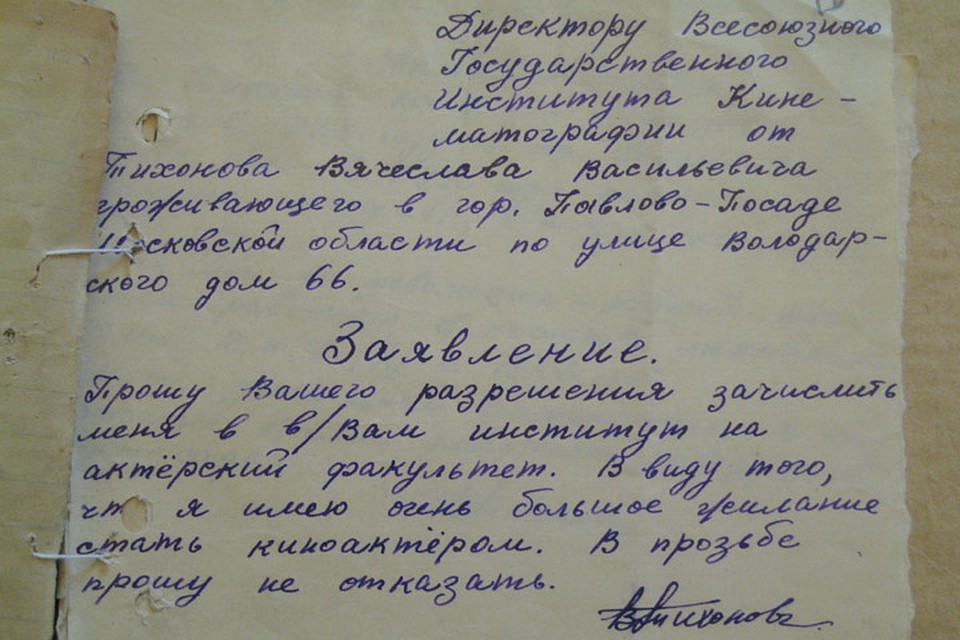 Директору Всесоюзного
Государственного
Института Кине-
матографии от
Тихонова Вячеслава Васильевича
проживающего в гор. Павлово-Посаде
Московской области по улице Володар-
ского дом 66.
Заявление.
Прошу Вашего разрешения зачислить
меня в в/Вам институт на
актёрский факультет. В виду того,
что я имею очень большое жилание
стать киноактёром. В прозьбе
прошу не отказать.
ВТихонов